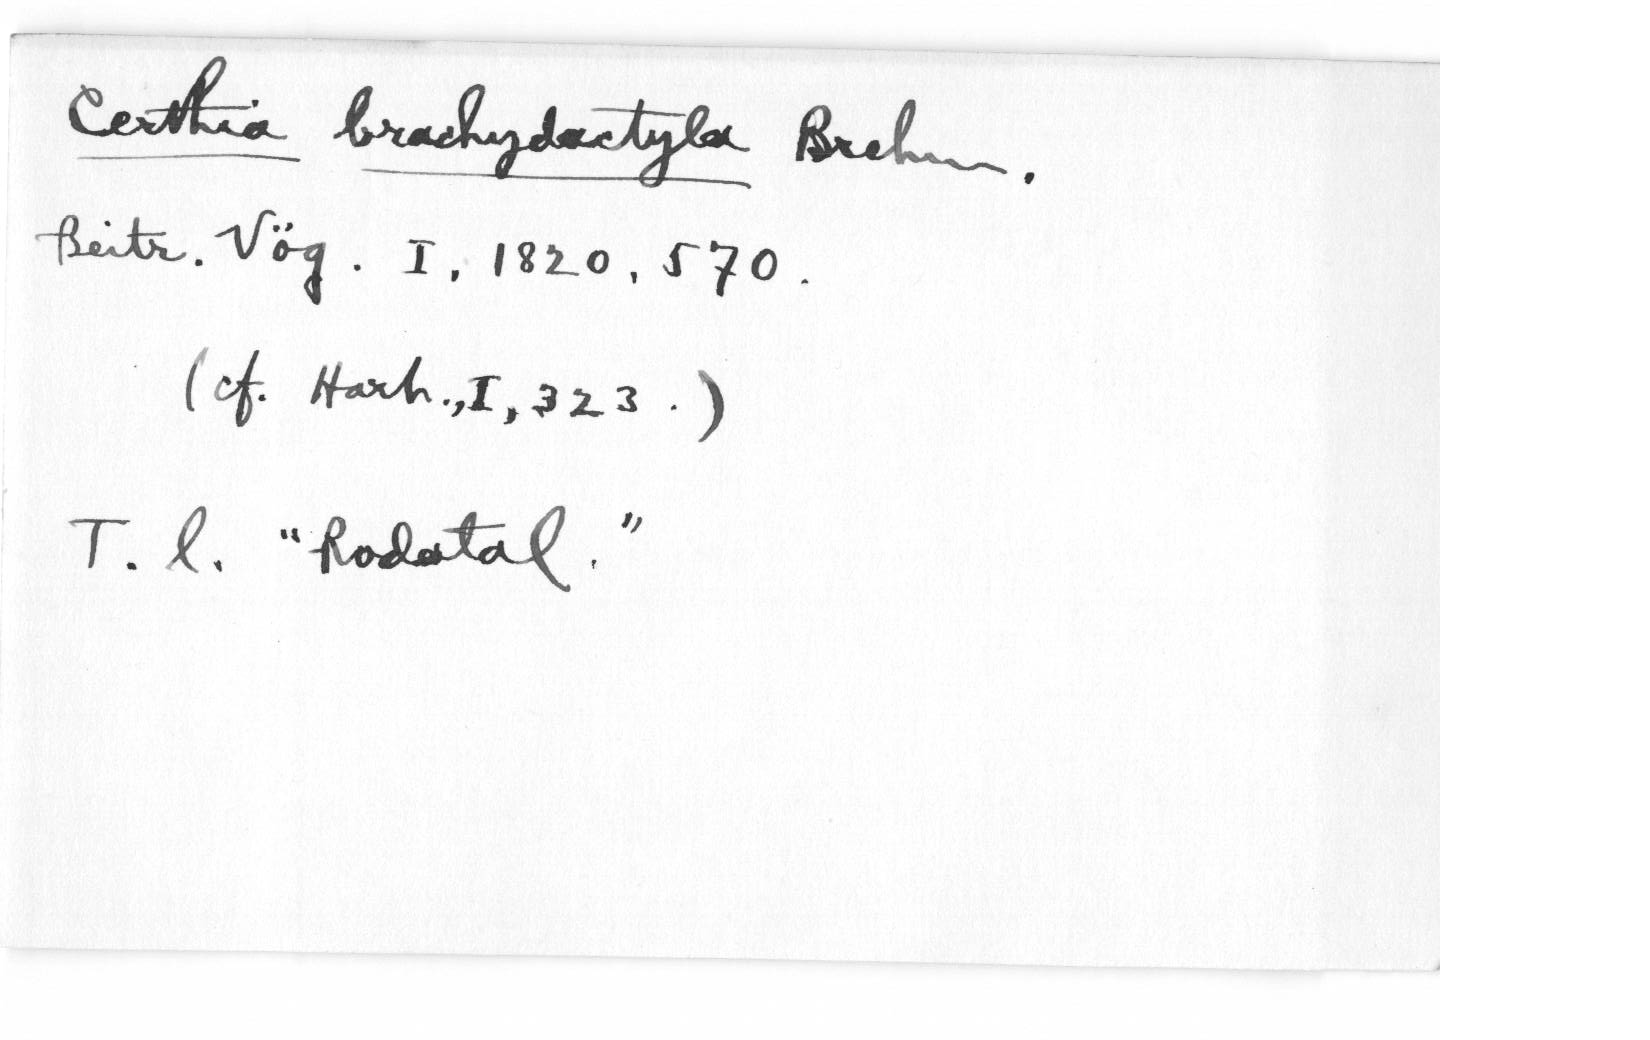 Certhia brachydactyla Brehm.
Beitr. Vög. I, 1820, 570.
(cf. Hart., I, 323.)
T. l. "Rodatal."